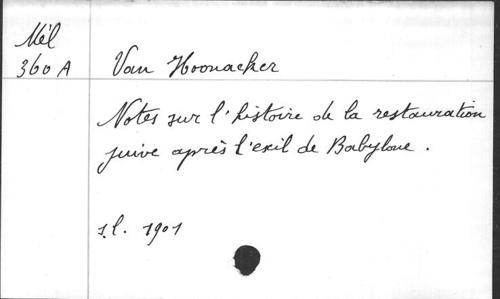 Mél
360 A
Van Hoonacker
Notes sur l'histoire de la restauration
juive après l'exil de Babylone.
s.l. 1901